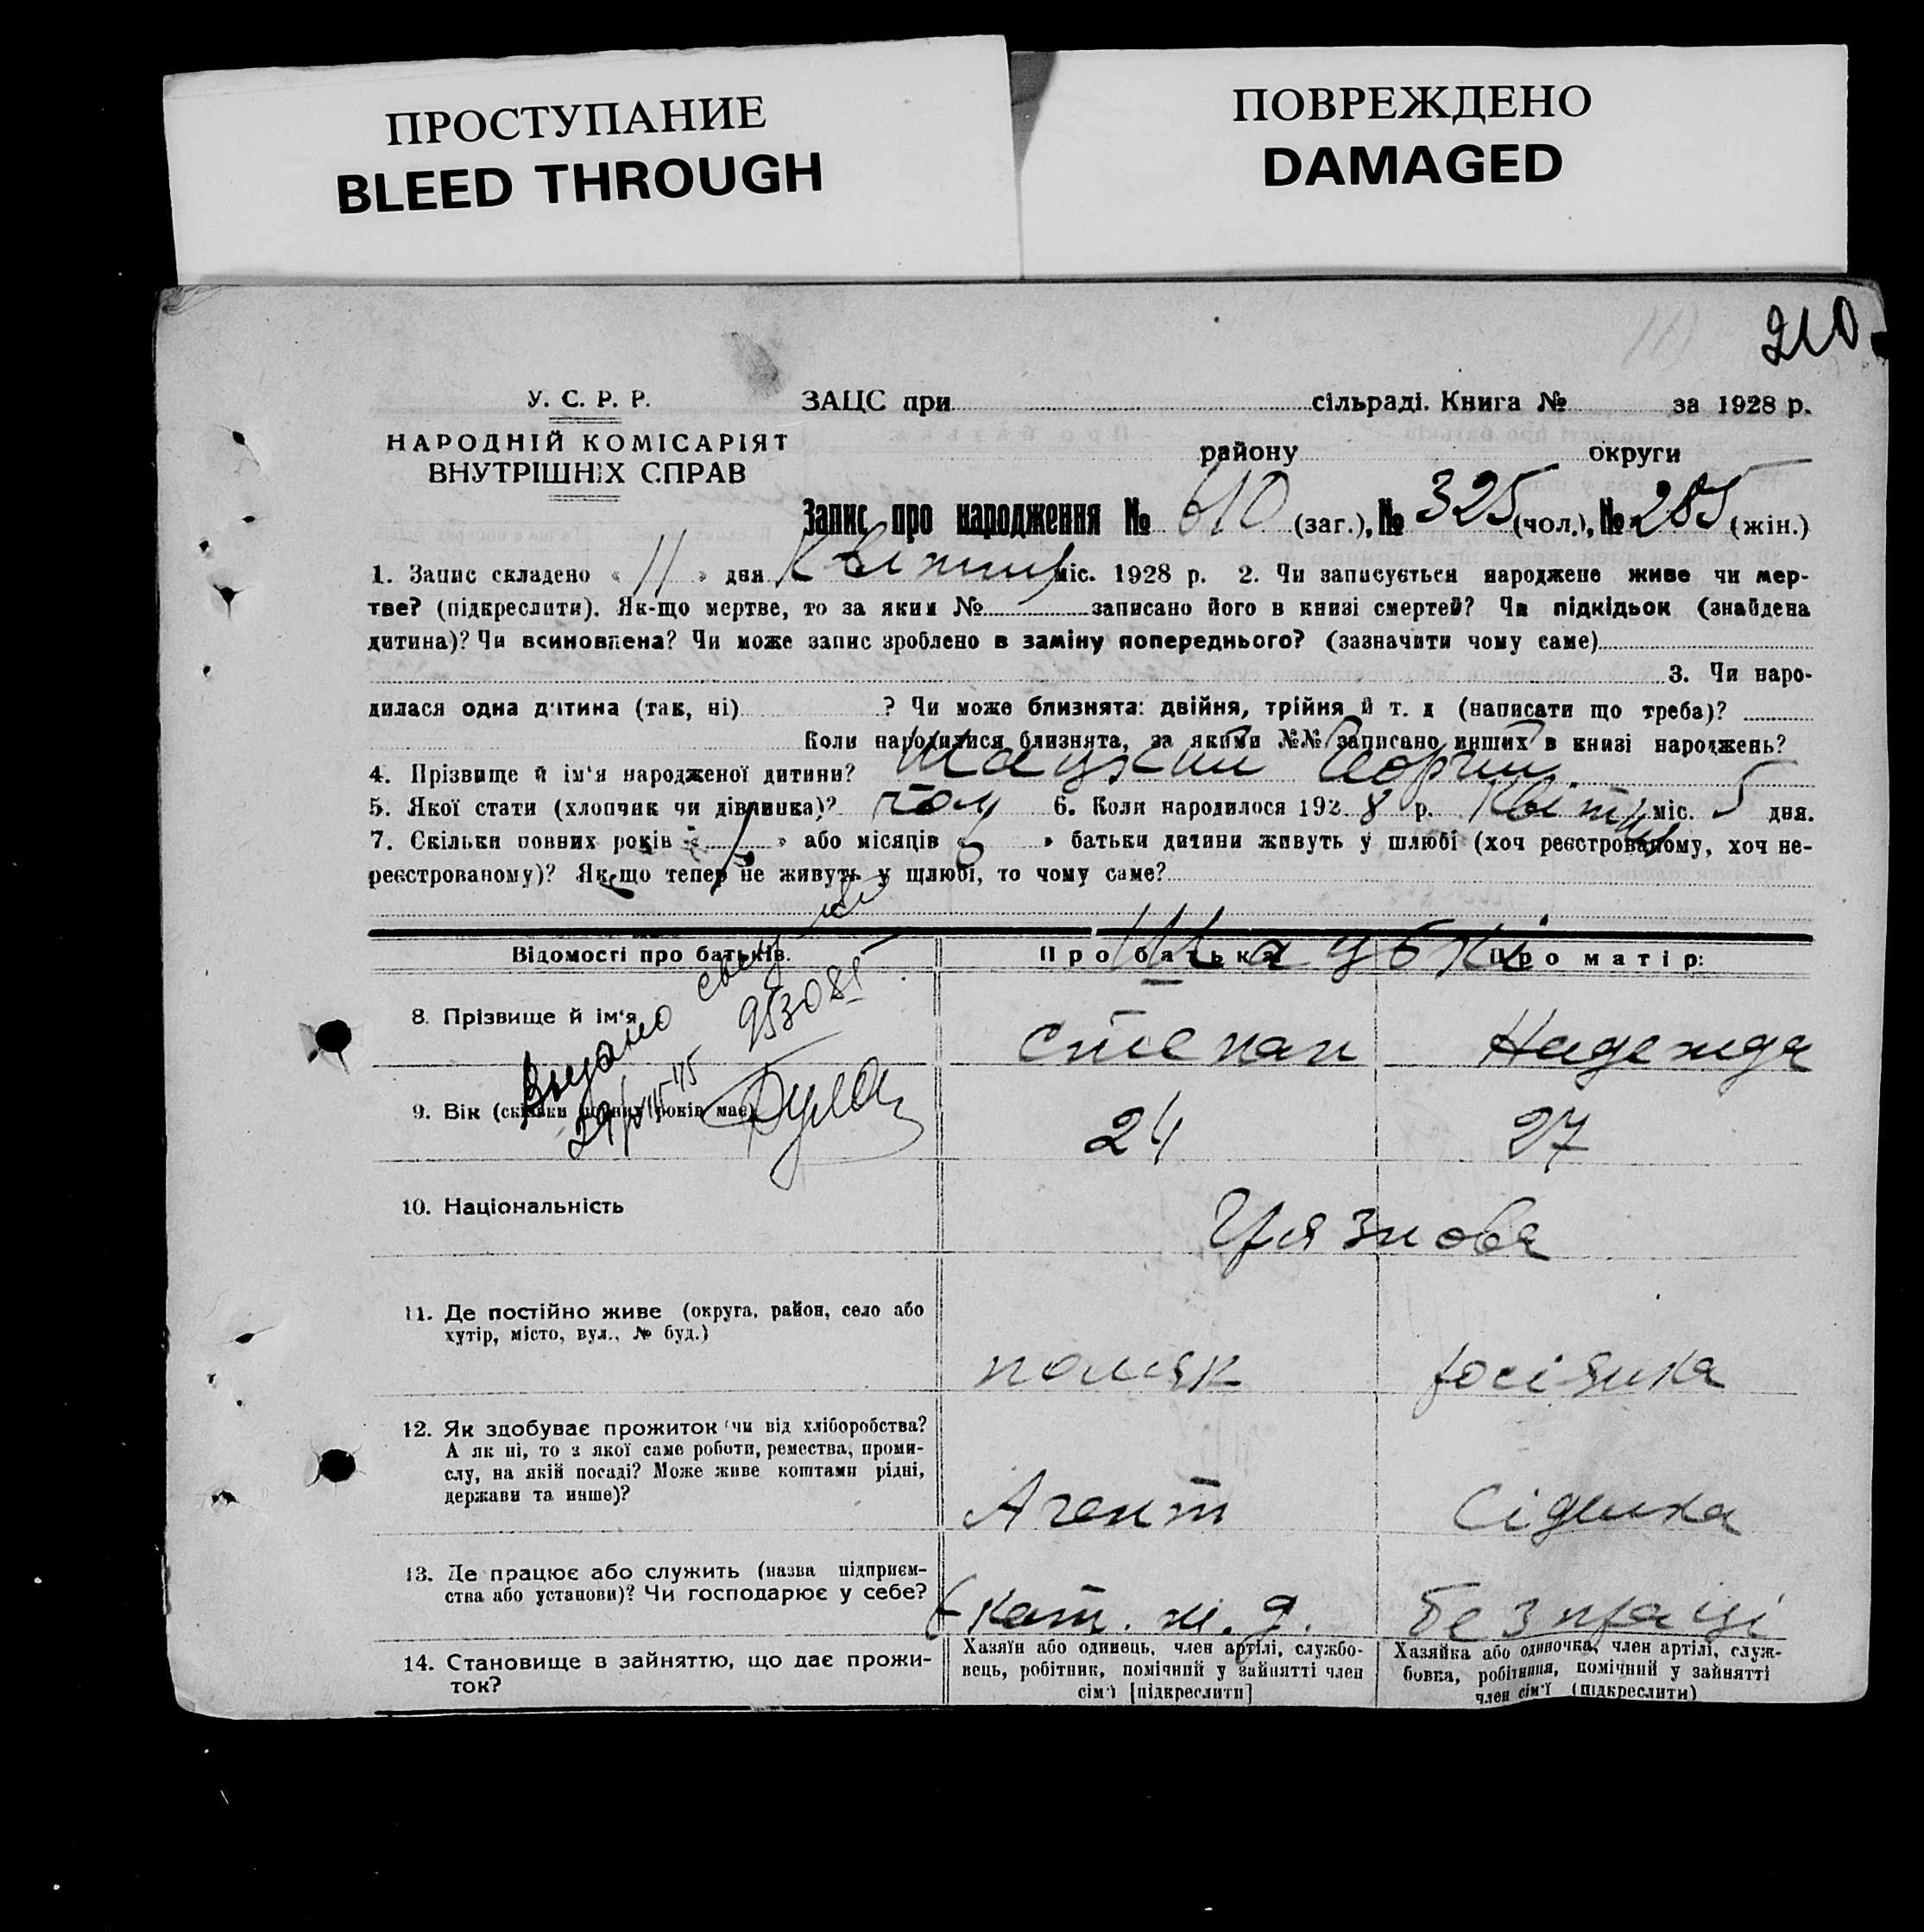 ПРОСТУПАНИЕ
BLEED THROUGH
ПОВРЕЖДЕНО
DAMAGED
210
У. С. Р. Р.
НАРОДНІЙ КОМІСАРІЯТ
ВНУТРІШНІХ СПРАВ
ЗАЦС при сільраді. Книга № за 1928 р.
району округи
Запис про народження № 610 (заг.), № 325 (чол.), № 285 (жін.)
1. Запис складено « 11 » дня Квітня міс. 1928 р. 2. Чи записується народжене живе чи мер-
тве? (підкреслити). Як-що мертве, то за яким № записано його в книзі смертей? Чи підкідьок (знайдена
дитина)? Чи всиновлена? Чи може запис зроблено в заміну попереднього? (зазначити чому саме)
3. Чи наро-
дилася одна дитина (так, ні) ? Чи може близнята: двійня, трійня й т. д (написати що треба)?
Коли народилися близнята, за якими №№ записано инших в книзі народжень?
4. Прізвище й ім'я народженої дитини?
5. Якої стати (хлопчик чи дівчинка)? чол 6. Коли народилося 1928 р. Квітня міс. 5 дня.
7. Скільки повних років « » або місяців « » батьки дитини живуть у шлюбі (хоч реєстрованому, хоч не-
реєстрованому)? Як-що тепер не живуть у шлюбі, то чому саме?
Відомості про батьків. Про батька Про матір:
8. Прізвище й ім'я Степан Надежда
Выдано
953085
9. Вік (скільки повних років має) 24 27
10. Національність Грязнова
11. Де постійно живе (округа, район, село або
хутір, місто, вул., № буд.)
поляк росіянка
12. Як здобуває прожиток (чи від хліборобства?
А як ні, то з якої саме роботи, ремества, проми-
слу, на якій посаді? Може живе коштами рідні,
держави та инше)?
Агент
13. Де працює або служить (назва підприєм-
ства або установи)? Чи господарює у себе?
Екат. ж. д. без праці
14. Становище в зайняттю, що дає прожи-
ток?
Хазяїн або одинець, член артілі, службо-
вець, робітник, помічний у зайнятті член
сім'ї [підкреслити]
Хазяйка або одиночка, член артілі, служ-
бовка, робітниця, помічний у зайнятті
член сім'ї (підкреслити)